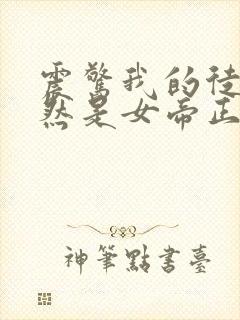 震驚我的徒
然是女帝正
神筆點書臺